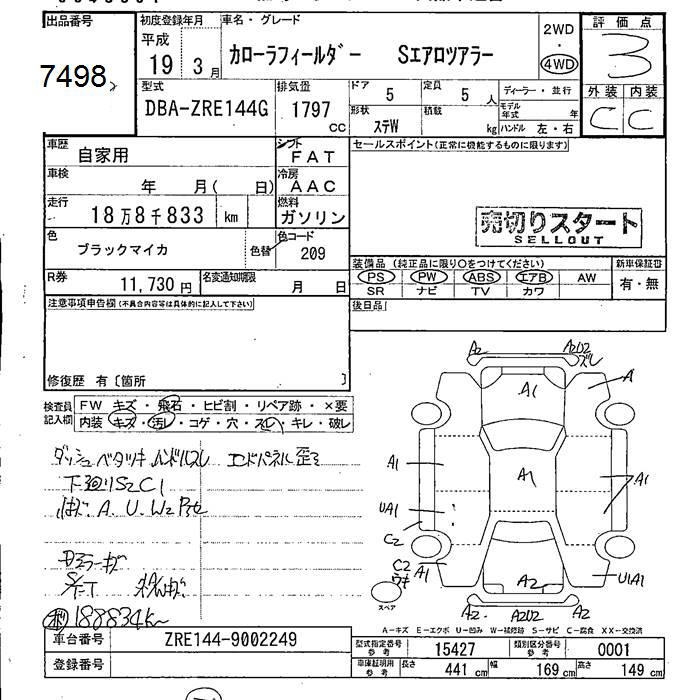 出品番号
7498
初度登録年月
平成
19 3月
車名・グレード
カローラフィールダー SエアロツアラーE
2WD
・
4WD
評価点
3
外装 内装
C C
型式
DBA-ZRE144G
排気量
1797
cc
ドア 5
定員 5 人
形状 ステW
積載 kg
ディーラー・並行
モデル年式 年
ハンドル 左・右
車歴 自家用
シフト FAT
車検 年 月( 日)
冷房 AAC
走行 18万8千833 km
燃料 ガソリン
色 ブラックマイカ
色替
色コード 209
R券 11,730 円
名変通知期限 月 日
セールスポイント(正常に機能するものに限ります)
売切りスタート
SELLOUT
装備品 (純正品に限り○をつけてください)
PS PW ABS エアB AW
SR ナビ TV カワ
新車保証書
有・無
注意事項申告欄(不具合内容等は具体的に記入して下さい)
後日品
修復歴 有〔箇所 〕
検査員記入欄
FW キズ・飛石・ヒビ割・リペア跡・×要
内装 キズ・汚レ・コゲ・穴・スレ・キレ・破レ
ダッシュベタツキ ハンドルスレ エンドパネル歪ミ
下廻りS2C1
A. U. W2
188834km
A2
A2U2
ズレ
A1
A
A1
A1
A1
UA1
C2
C2
ウキ
A1
A2
U1A1
スペア
A2
A2U2
A2
A-キズ E-エクボ U-凹み W-補修跡 S-サビ C-腐食 XX-交換済
車台番号 ZRE144-9002249
登録番号
型式指定番号 参考 15427
類別区分番号 参考 0001
車庫証明用 参考 長さ 441 cm 幅 169 cm 高さ 149 cm